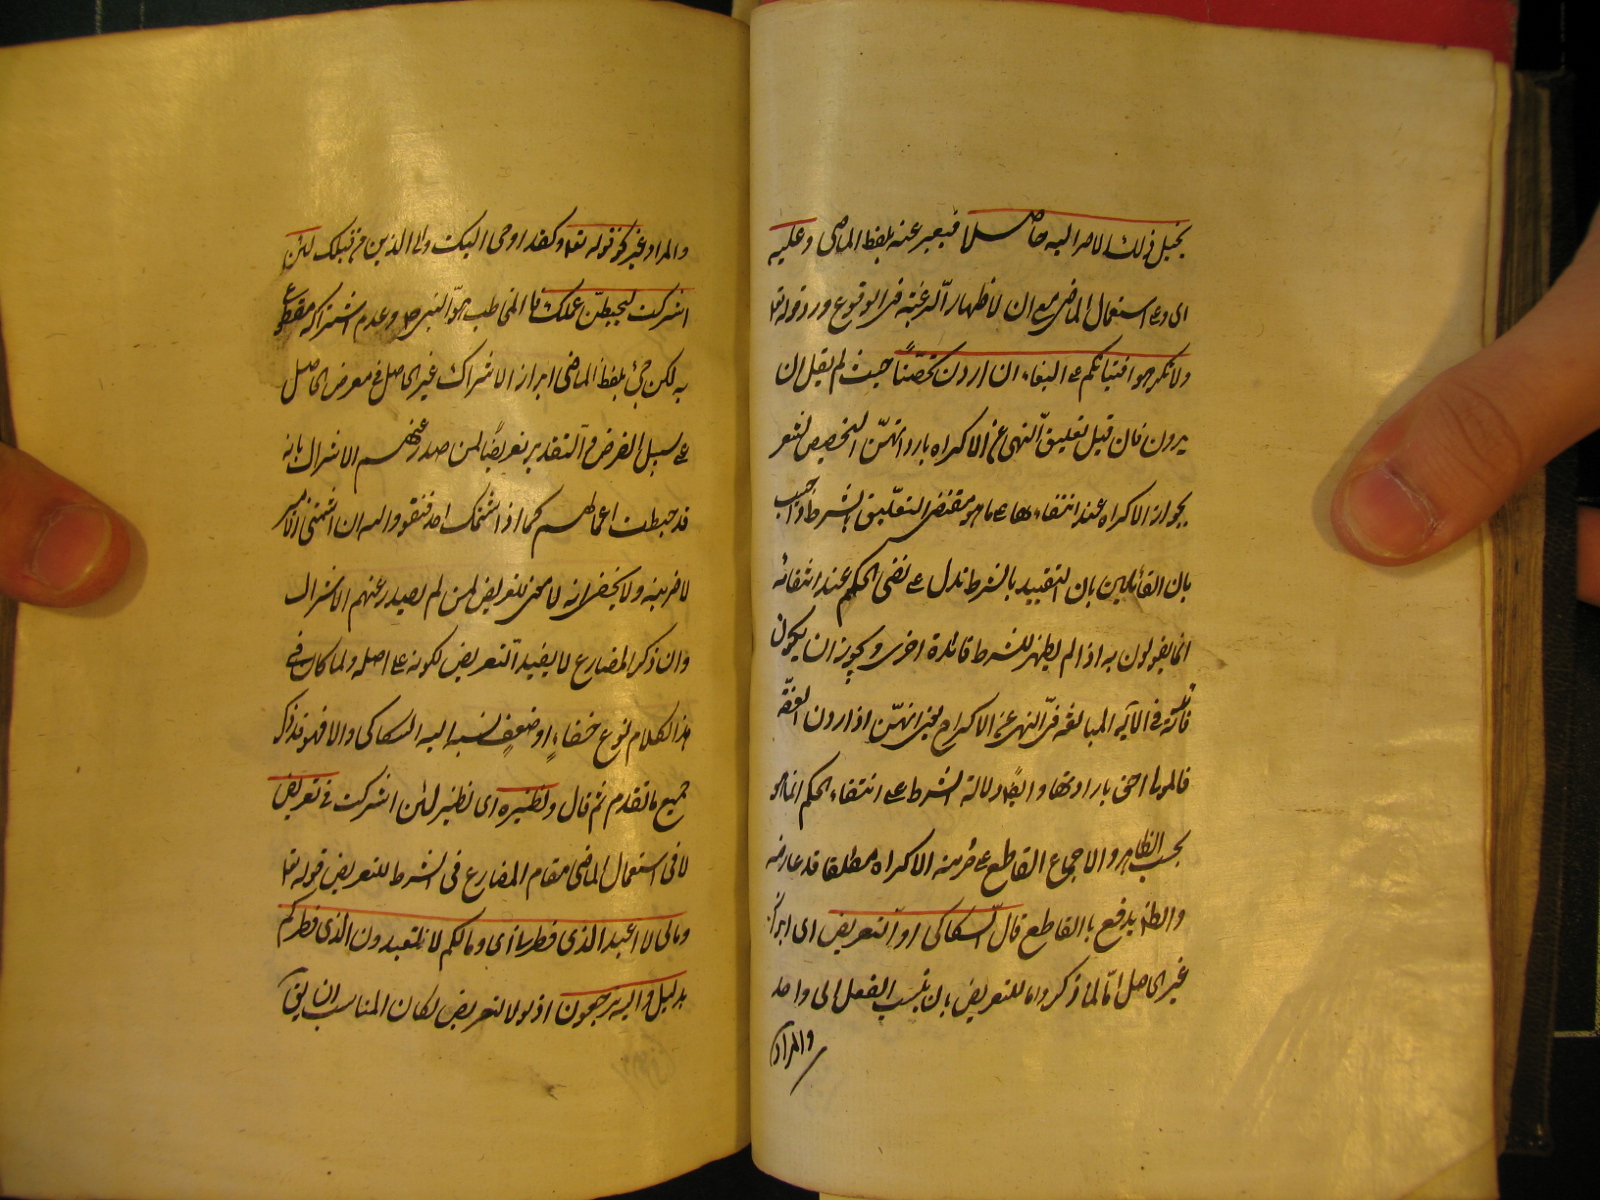 يخيل ذلك الامر اليه حاصلا فيعبر عنه بلفظ الماضى وعليه
اى وعلى استعمال الماضى مع ان لاظهار الرغبة فى الوقوع ورد قوله تعا
ولا تكرهوا فتياتكم على البغاء ان اردن تحصنا حيث لم يقل ان
يردن فان قيل تعليق النهى عن الاكراه باردتهنّ التحصن يشعر
بجواز الاكراه عند انتفاءها على ما هو مقتضى التعليق بالشرط واجيب
بان القائلين بان التقييد بالشرط تدل على نفى الحكم عند انتفائه
انما يقولون به اذا لم يظهر للشرط فائدة اخرى ويجوز ان يكون
فائدته فى الآية المبالغة فى النهى عن الاكراه يعنى انهنّ اذا اردن العفّة
فالمولى احق بارادتها وايضا دلالة الشرط على انتفاء الحكم انما هو
بحسب الظاهر والاجماع القاطع على حرمة الاكراه مطلقا قد عارضه
والظاهر يدفع بالقاطع قال السكاكى او التعريض اى ابراز
غير الحاصل امّا لما ذكر واما للتعريض بان ينسب الفعل الى واحد
والمراد
والمراد غيره نحو قوله تعا ولقد اوحى اليك والى الذين من قبلك لئن
اشركت ليحبطنّ عملك فالمخاطب هو النبى وعدم اشتراكه مقطوع
به لكن جئ بلفظ الماضى ابراز الاشراك غير الحاصل فى معرض الحاصل
على سبيل الفرض والتقدير تعريضا لمن صدر عنهم الاشراك بانه
قد حبطت اعمالهم كما اذا شتمك احد فتقول والله ان شتمنى الامير
لاضربنه ولا يخفى انه لا معنى للتعريض لمن لم يصدر عنهم الاشراك
وان ذكر المضارع لا يفيد التعريض لكونه على اصله ولما كان فى
هذا الكلام نوع خفاء او ضعف نسبه اليه السكاكى والا فهو قد ذكر
جميع ما تقدم ثم قال ونظيره اى نظير لئن اشركت فى تعريض
لا فى استعمال الماضى مقام المضارع فى الشرط للتعريض قوله تعا
ومالى لا اعبد الذى فطرنى اى وما لكم لا تعبدون الذى فطركم
بدليل واليه ترجعون اذ لولا التعريض لكان المناسب ان يق